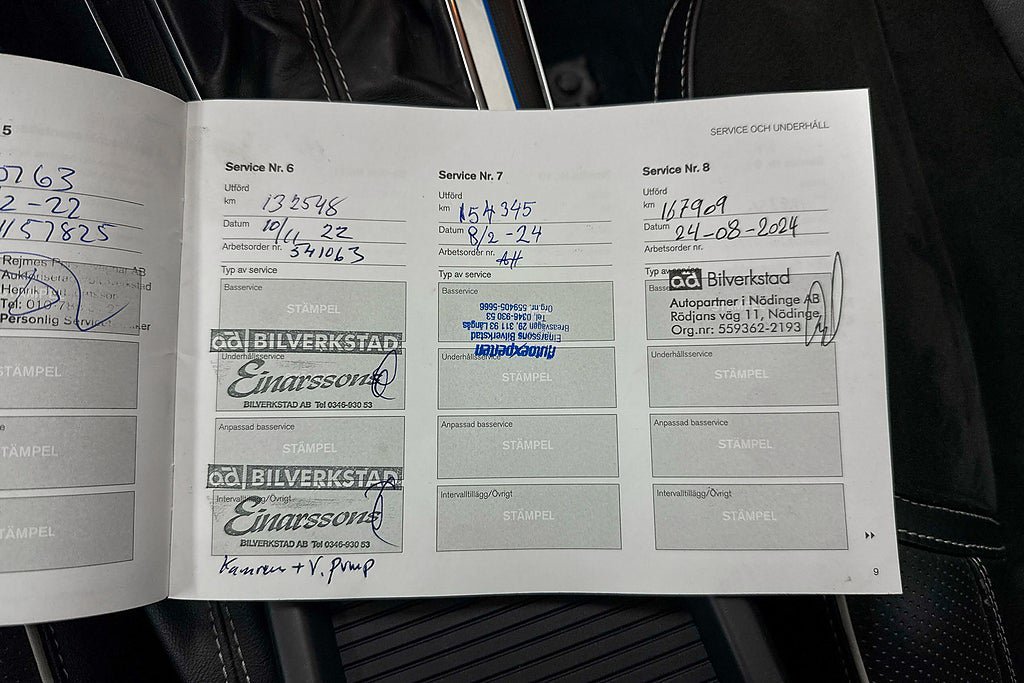 5
0763
2-22
1157825
Rejmes
Henrik
Tel: 010-78
Personlig Service
STÄMPEL
STÄMPEL
STÄMPEL
SERVICE OCH UNDERHÅLL
Service Nr. 6
Utförd
km 132548
Datum 10/11 22
Arbetsorder nr. 541063
Typ av service
Basservice
STÄMPEL
ad BILVERKSTAD
Underhållsservice
Einarssons
BILVERKSTAD AB Tel 0346-930 53
Anpassad basservice
STÄMPEL
ad BILVERKSTAD
Intervalltillägg/Övrigt
Einarssons
BILVERKSTAD AB Tel 0346-930 53
Kamrem + V. pump
Service Nr. 7
Utförd
km 154345
Datum 8/2-24
Arbetsorder nr. AH
Typ av service
Basservice
Autoexperten
Einarssons Bilverkstad
Breasvägen 29, 311 93 Långås
Tel. 0346-930 53
Org.nr. 559405-5666
Underhållsservice
STÄMPEL
Anpassad basservice
STÄMPEL
Intervalltillägg/Övrigt
STÄMPEL
Service Nr. 8
Utförd
km 167909
Datum 24-08-2024
Arbetsorder nr.
Typ av service
Basse
ad Bilverkstad
Autopartner i Nödinge AB
Rödjans väg 11, Nödinge
Org.nr: 559362-2193
Underhållsservice
STÄMPEL
Anpassad basservice
STÄMPEL
Intervalltillägg/Övrigt
STÄMPEL
9